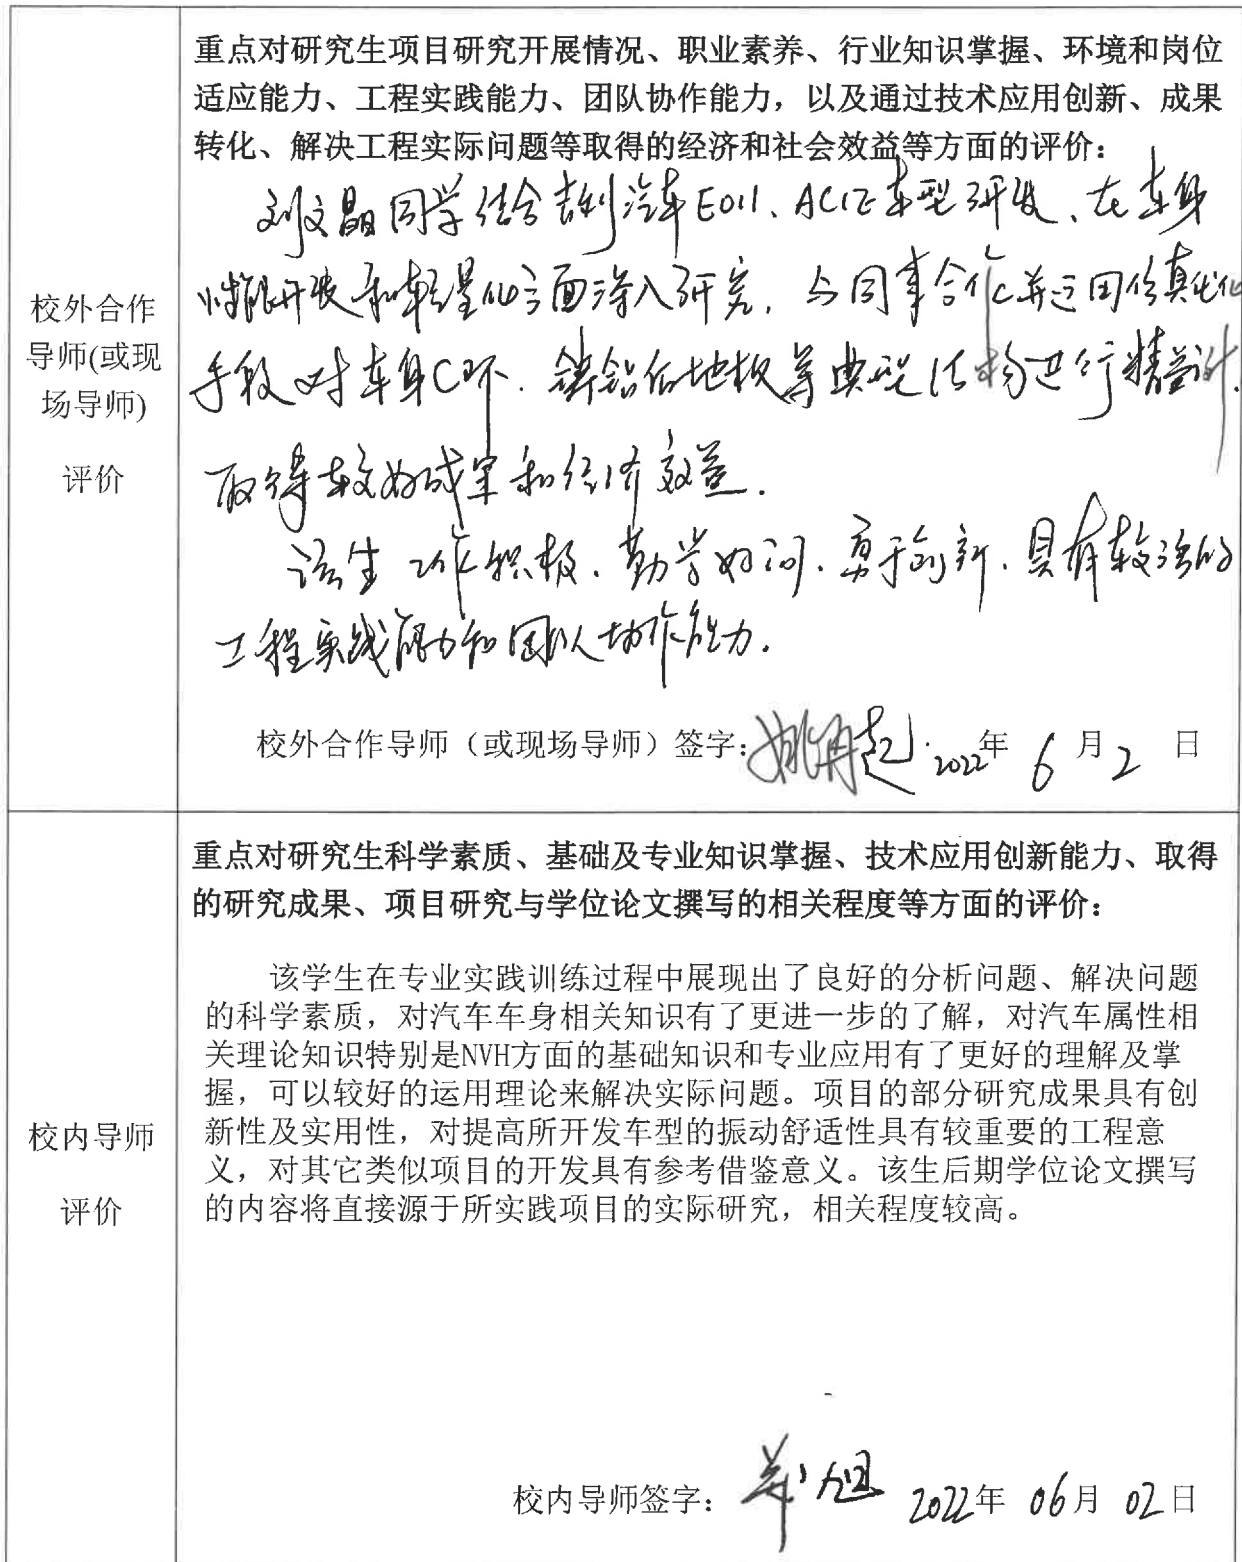 重点对研究生项目研究开展情况、职业素养、行业知识掌握、环境和岗位
适应能力、工程实践能力、团队协作能力，以及通过技术应用创新、成果
转化、解决工程实际问题等取得的经济和社会效益等方面的评价：
刘文晶同学结合吉利汽车E011、AC1E车型研发、在车身
性能开发和轻量化方面深入研究，与同事合作并运用仿真优化
手段对车身C环、铸铝后地板等典型结构进行精益设计，
取得较好成果和经济效益.
该生工作积极、勤学好问、勇于创新、具有较强的
工程实践能力和团队协作能力.
校外合作
导师(或现
场导师)
评价
校外合作导师（或现场导师）签字：姚再起 2022年 6 月 2 日
重点对研究生科学素质、基础及专业知识掌握、技术应用创新能力、取得
的研究成果、项目研究与学位论文撰写的相关程度等方面的评价：
该学生在专业实践训练过程中展现出了良好的分析问题、解决问题
的科学素质，对汽车车身相关知识有了更进一步的了解，对汽车属性相
关理论知识特别是NVH方面的基础知识和专业应用有了更好的理解及掌
握，可以较好的运用理论来解决实际问题。项目的部分研究成果具有创
新性及实用性，对提高所开发车型的振动舒适性具有较重要的工程意
义，对其它类似项目的开发具有参考借鉴意义。该生后期学位论文撰写
的内容将直接源于所实践项目的实际研究，相关程度较高。
校内导师
评价
校内导师签字： 2022年 06月 02日